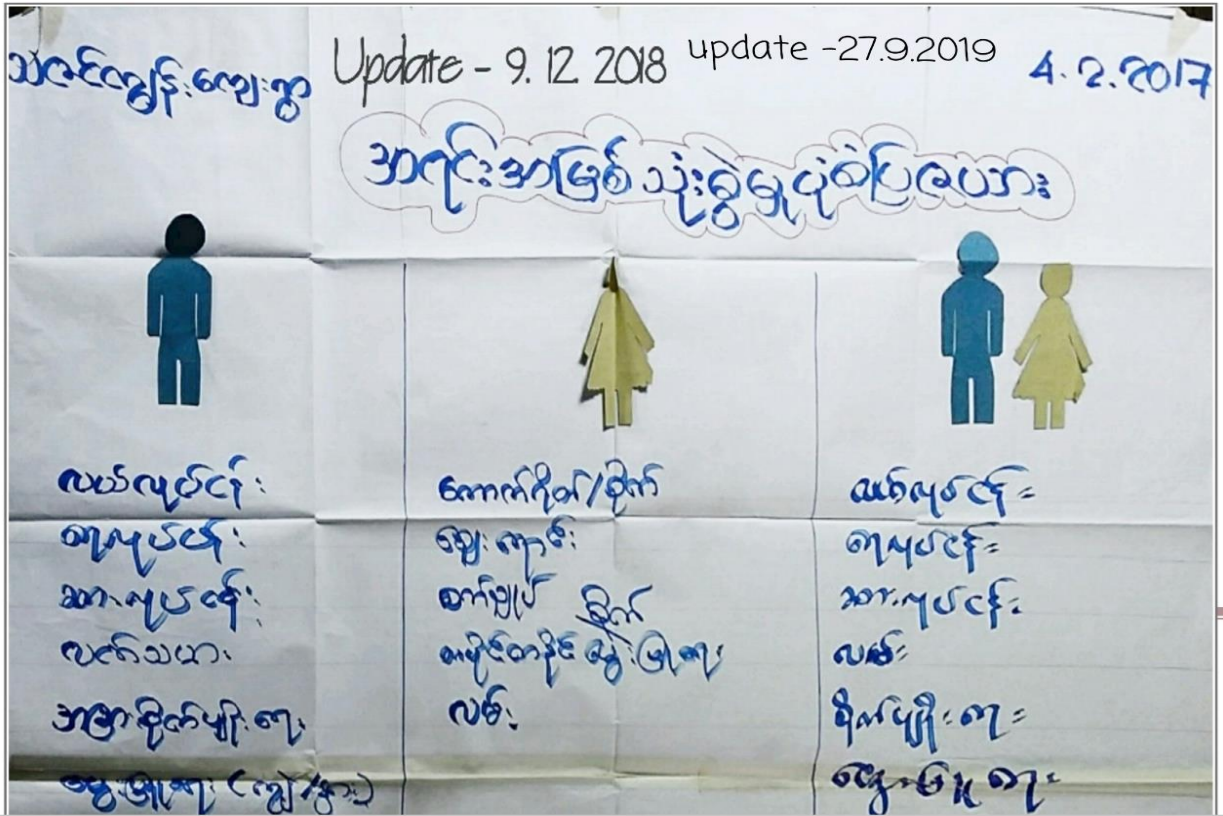 သဇင်ကျွန်းကျေးရွာ
Update - 9. 12. 2018
update -27.9.2019
4.2.2017
အရင်းအမြစ် သုံးစွဲမှုပုံစံပြဇယား
လယ်လုပ်ငန်း
ရေလုပ်ငန်း
ဆားလုပ်ငန်း
လက်သမား
စိုက်ပျိုးရေး
မွေးမြူရေး (ကျွဲ/နွား)
ကောက်ရိတ်/စိုက်
ဈေးရောင်း
စက်ချုပ်
စိုက်
တပိုင်တနိုင် မွေးမြူရေး
လမ်း
လယ်လုပ်ငန်း
ရေလုပ်ငန်း
ဆားလုပ်ငန်း
လမ်း
စိုက်ပျိုးရေး
မွေးမြူရေး